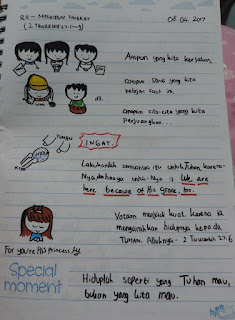 RE - MESKIPUN SINGKAT
08.04.2017
(2 TAWARIKH 27:1-9)
Apapun yang kita kerjakan,
Apapun studi yang kita
pelajari saat ini,
dll.
Apapun cita-cita yang kita
perjuangkan...
TUHAN
HIDUP
INGAT.
Lakukanlah semuanya itu untuk Tuhan, karena
Nya,
untuk-Nya :) We are
here because of His Grace, too.
Yotam menjadi kuat, karena ia
mengarahkan hidupnya kepada
TUHAN, Allahnya - 2 Tawarikh 27:6
For you're His princess
Special
moment
Hiduplah seperti yang Tuhan mau,
bukan yang kita mau.